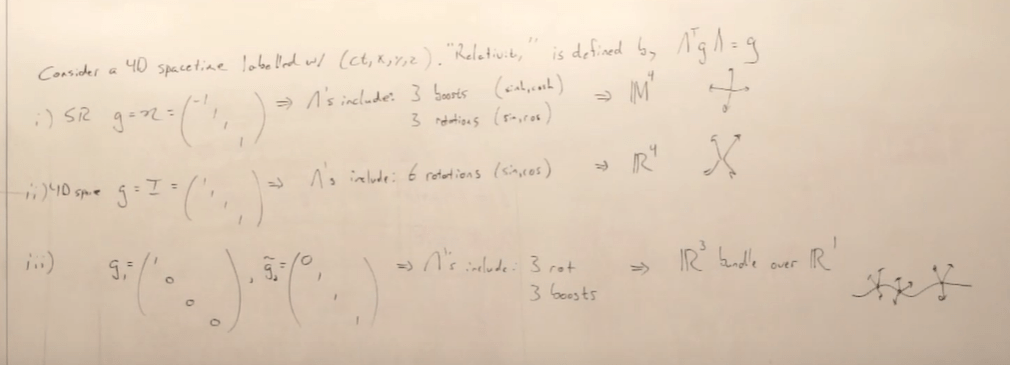 Consider a 4D spacetime labelled w/ (ct, x, y, z). "Relativity" is defined by ΛᵀgΛ = g
i.) SR g = η = (-1, 1, 1, 1) ⇒ Λ's include: 3 boosts (sinh, cosh) ⇒ 𝕄⁴
3 rotations (sin, cos)
ii.) 4D space g = I = (1, 1, 1, 1) ⇒ Λ's include: 6 rotations (sin, cos) ⇒ ℝ⁴
iii) g₁ = (1 0 0 0), g̃₂ = (0, 1, 1, 1) ⇒ Λ's include: 3 rot ⇒ ℝ³ bundle over ℝ¹
3 boosts